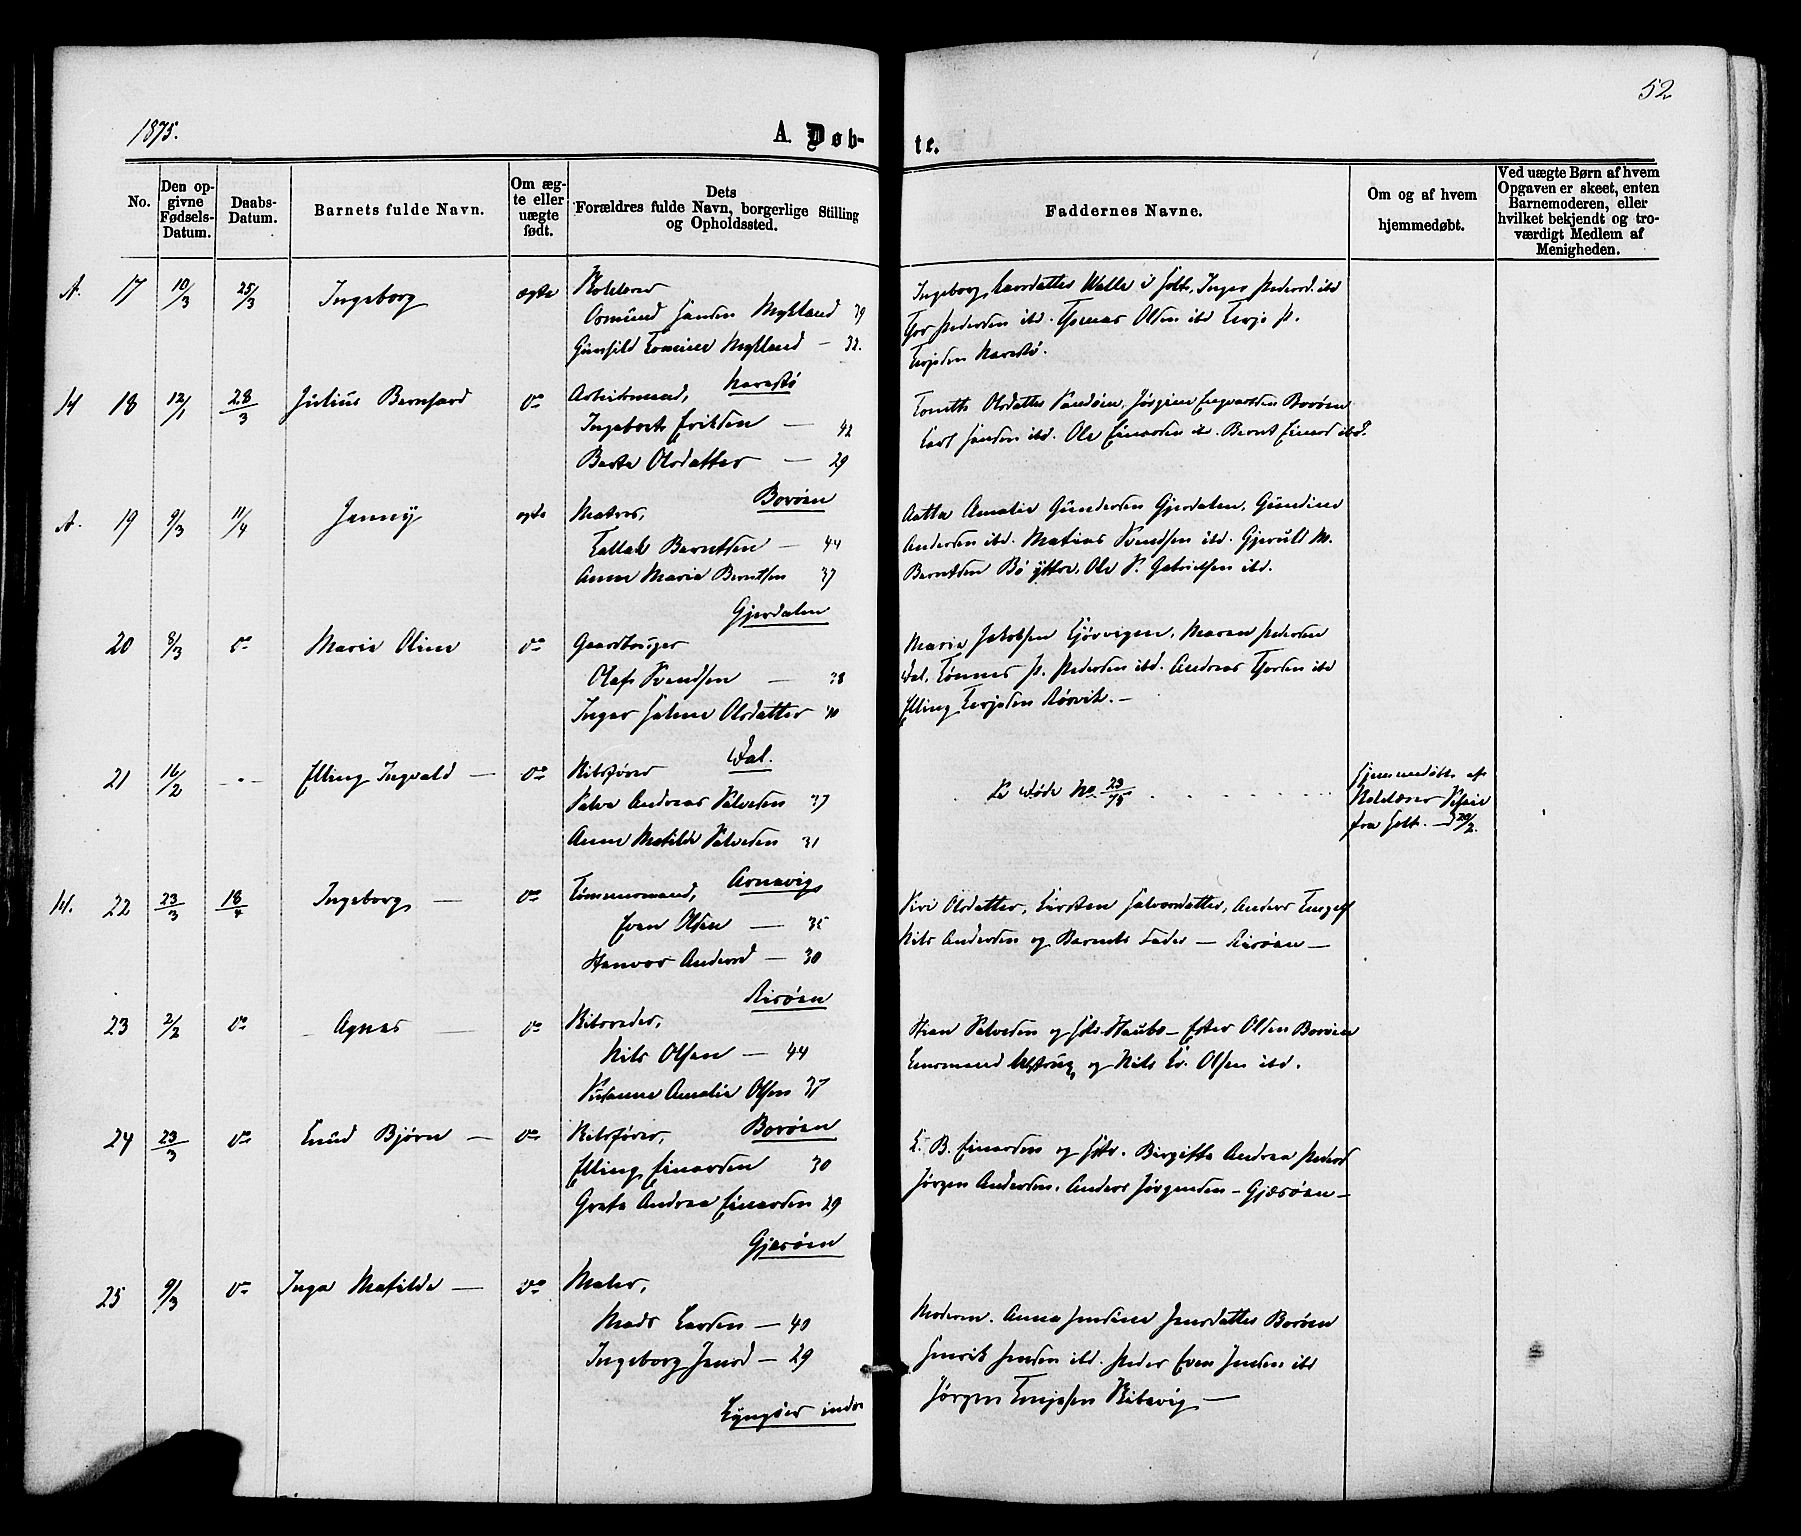 52
1875.
A. Døb-
te.
No.
Den opgivne Fødsels-Datum.
Daabs-Datum.
Barnets fulde Navn.
Om ægte eller uægte født.
Dets Forældres fulde Navn, borgerlige Stilling og Opholdssted.
Faddernes Navne.
Om og af hvem hjemmedøbt.
Ved uægte Børn af hvem Opgaven er skeet, enten Barnemoderen, eller hvilket bekjendt og troværdigt Medlem af Menigheden.
A. 17 10/3 25/3 Ingeborg ægte
Osmund Hansen Mykland 39
Gunhild Mykland — 32.
Narestø
Ingeborg Larsdatter Walle i Holt, Inger Pedersd. ibd
Thor Pedersen ibd. Thomas Olsen ibd Terje P.
Terjesen Narestø.
H 18 12/1 28/3 Julius Bernhard do
Arbeidsmand,
Ingebret Eriksen — 42
Berte Olsdatter — 29
Borøen
Olsdatter Sandøen, Jørgine Engvaldsen Borøen
Carl Hansen ibd. Ole Einersen ib. Bernt Einers ibd.
A. 19 9/3 11/4 Jenny ægte
Matros,
Tallak Berntsen — 44
Anne Marie Berntsen 37
Gjerdalen
Aatta Amalie Gundersen Gjerdalen, Gundine
Andersen ibd. Matias Svendsen ibd. Gjeruld M.
Berntsen Bø yttre, Ole S. Gabrielsen ibd.
20 8/3 do Marie Oline do
Gaardbruger
Olaf Svendsen — 38
Inger Helene Olsdatter 40
Dal.
Marie Jakobsen Gjøvigen, Maren Pedersen
Dal, Tønnes P. Pedersen ibd. Andreas Thorsen ibd
Elling Terjesen Rørvik. —
21 16/2 - . - Elling Ingvald — do
Skibsfører
Salve Andreas Salvesen 37
Anne Matilde Salvesen 31
Arnevig
Se Døde No. 23/75
Hjemmedøbt af
fra Holt. — d 20/2.
H. 22 23/3 18/4 Ingeborg — do
Tømmermand,
Even Olsen — 35
Andersd — 30
Risøen
Siri Olsdatter, Kirsten Halvorsdatter, Anders
Nils Andersen og Barnets Fader — Risøen —
23 2/2 do — Agnes — do
Skibsreder,
Nils Olsen — 44
Susanne Amalie Olsen 37
Borøen
Salvesen og Hstr. Haubo — Ester Olsen Borøen
og Nils Olsen ibd.
24 23/3 do Knud Bjørn — do
Skibsfører,
Elling Einersen 30
Grete Andrea Einersen 29
Gjæsøen
K. B. Einersen og Hstr. Birgitte Andrea Pedersd
Jørgen Andersen, Anders Jørgensen — Gjæsøen —
25 9/3 do Inga Matilde — do
Maler,
Mads Larsen — 40
Ingeborg Jensd — 29
Lyngør indre
Moderen. Anna Jensine Jensdatter Borøen
Henrik Jensen ibd. Peder Even Jensen ibd
Jørgen Terjesen Kilsvig —